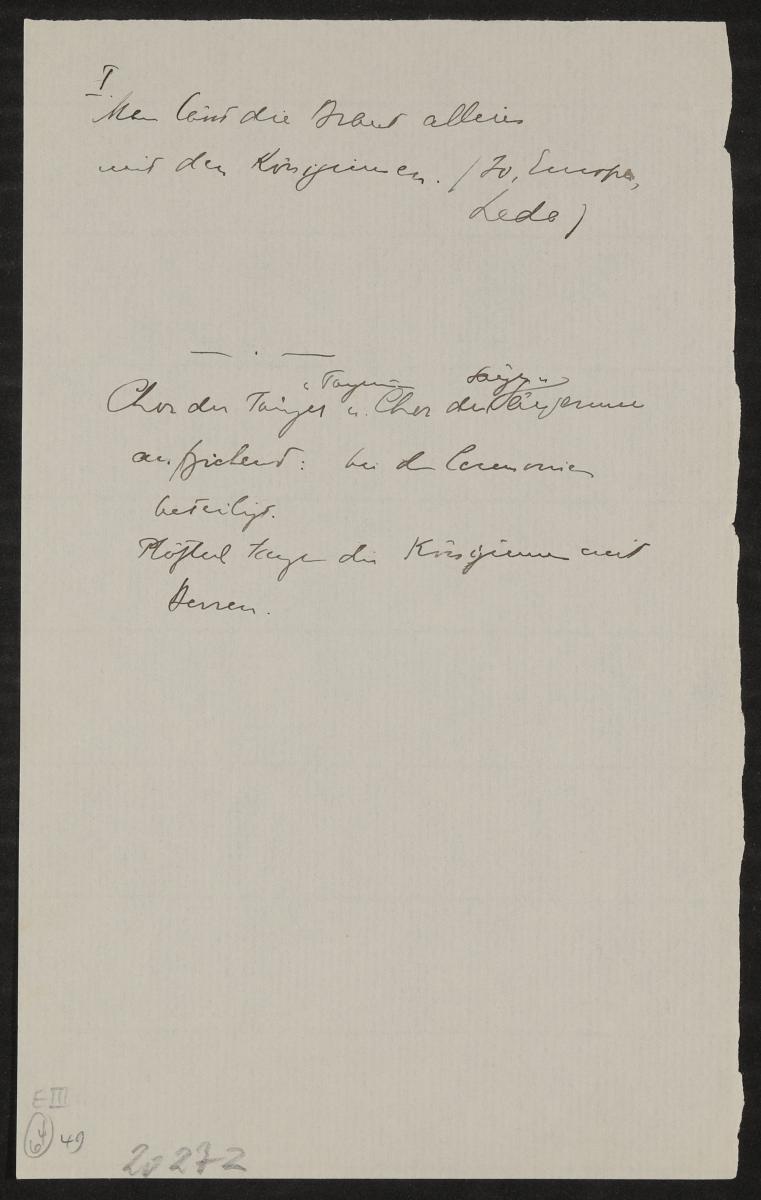 I
Man lässt die Braut allein
mit den Königinnen. (Io, Europa,
Leda)
— . —
u. Tänzerinnen Sänger u.
Chor der Tänzer u. Chor der Sängerinnen
anziehend: bei den Ceremonien
beteiligt.
Plötzlich tanzen die Königinnen mit
Herren.
E III
64 49
20272